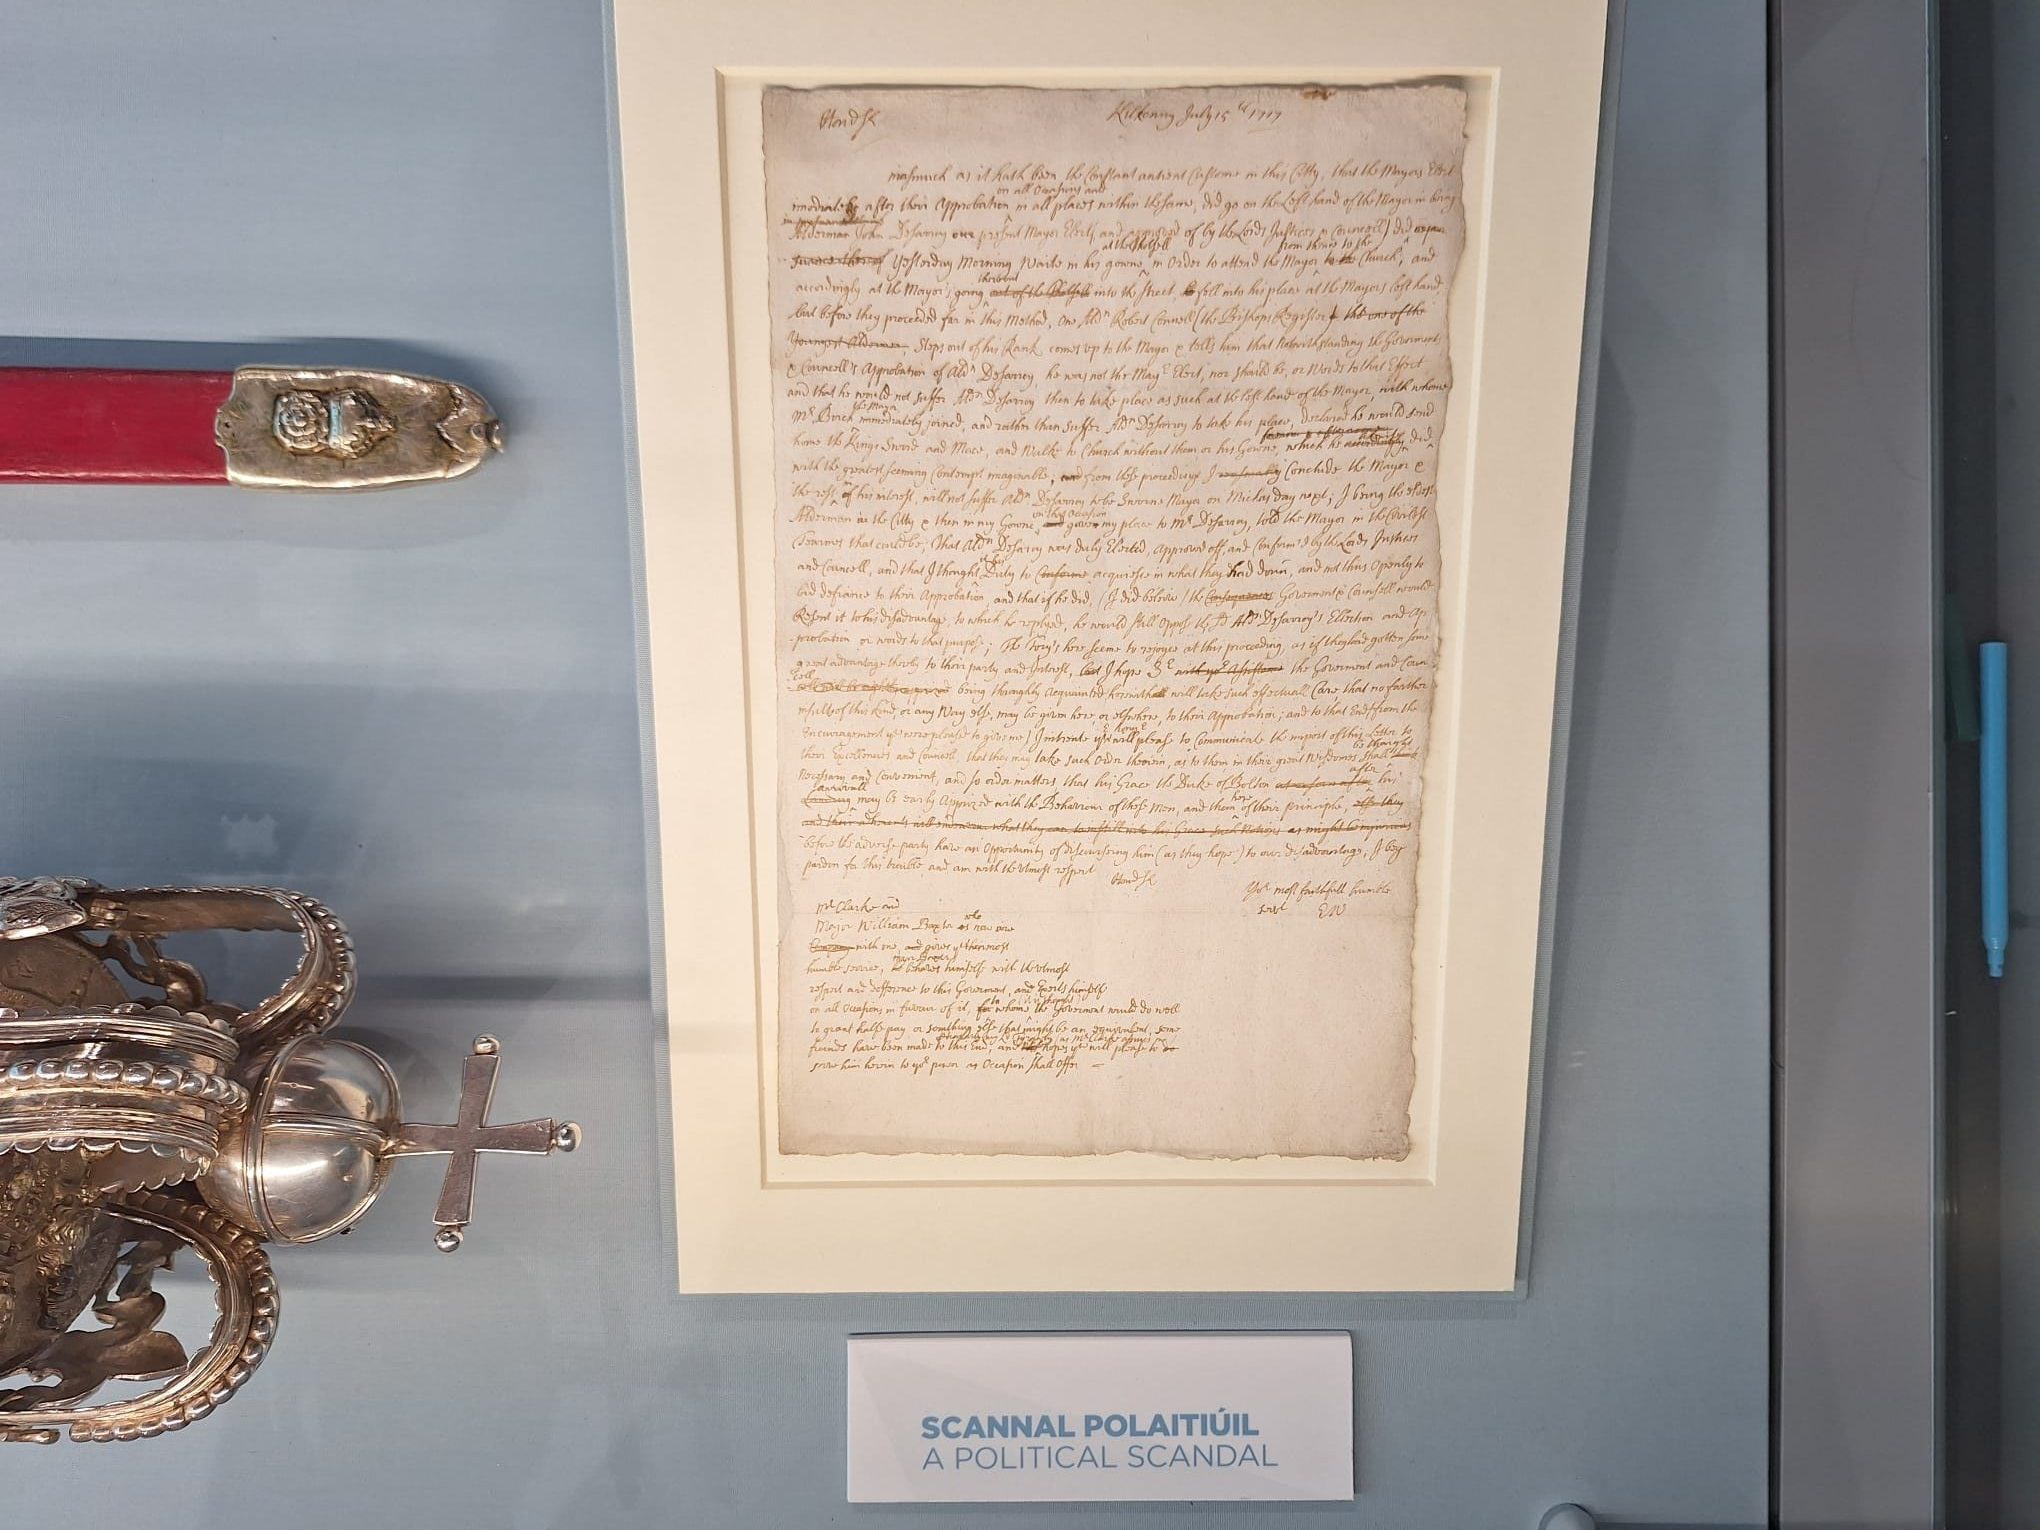 Hon.d S.r
Kilkenny July 15th 1717
inasmuch as it hath been the Constant antient Custome in this Citty, that the Mayors Elect
on all Occasions and
imediately after their Approbation in all places within the same, did go on the Left hand of the Mayor in being
Alderman John Desarroy our present Mayor Elect and approved of by the Lords Justices & Councell) did
at the Tholsell from thence to the
Yesterday Morning Waite in his gowne in Order to attend the Mayor to the Church, and
thereout
accordingly at the Mayor's going out of the Tholsell into the Street, he fell into his place at the Mayors left hand,
but before they proceeded far in this Method, One Ald.n Robert Connell (the Bishops Register) the one of the
Youngest Aldermen, Steps out of his Rank comes up to the Mayor & tells him that Notwithstanding the Goverments
& Councell's Approbation of Ald.n Desarroy, he was not the May.r Elect, nor should be, or Words to that Effect
and that he would not suffer Ald.n Desarroy then to take place as such at the left hand of the Mayor, with whome
the Mayor
M.r Birch immediately joined, and rather than suffer Ald.n Desarroy to take his place, declared he would send
home the Kings Sword and Mace, and Walke to Church without them or his Gowne, which he accordingly did
with the greatest seeming Contempt imaginable, and from these proceedings I reasonably Conclude the Mayor &
the rest of his interest, will not suffer Ald.n Desarroy to be Sworne Mayor on Michas day next; I being the eldest
on this Occasion
Alderman in the Citty & then in my Gowne, and gave my place to M.r Desarroy, told the Mayor in the Civilest
Tearmes that could be, that Ald.n Desarroy was duly Elected, Approved off, and Confirm'd by the Lords Justices
and Councell, and that I thought Duty to Conforme acquiesce in what they had donn, and not thus Openly to
bid defiance to their Approbation, and that if he did, (I did beleive) the Consequences Goverment & Counsell would
Resent it to his disadvantage, to which he replyed, he would still Oppose the s.d Ald.n Desarroy's Election and Ap
probation or words to that purpose; The Tory's here seeme to rejoyce at this proceeding, as if they had gotten some
great advantage thereby to their party and Interest, but I hope S.r with yo.r Assistance the Goverment and Coun
cell being throughly Acquainted herewith will take such effectuall Care, that no farther
insults of this kind, or any Way else, may be given here, or elsewhere, to their Approbation; and to that End (from the
Encouragement y.u were please to give me) I intreate y.u will please to Communicate the import of this Letter to
be thought
their Excellencies and Councell, that they may take such Order therein, as to them in their great Wisdomes shall
after
Necessary and Convenient, and so order matters that his Grace the Duke of Bolton his
arrivall
Landing may be early Apprized with the Behaviour of these Men, and them of their principle,
and their adherents will endeavour what they can to instill into his Grace such Notions as might be injurious
before the adverse party have an Opportunity of discourseing him (as they hope) to our disadvantage, I beg
pardon for this trouble and am with the Utmost respect
Hon.d S.r
Yo.r most faithfull humble
serv.t EW
M.r Clarke and
Major William Baxter who is now are
Company with me, and gives y.u their most
humble service, he behaves himself with the utmost
respect and defference to this Goverment, and Exerts himself
on all Occasions in favour of it, for whome the Goverment would do well
to grant halfe pay or something else that might be an equivalent, some
friends have been made to this End, and hopes y.u will please to
serve him herein to yo.r power as Occasion shall Offer
SCANNAL POLAITIÚIL
A POLITICAL SCANDAL